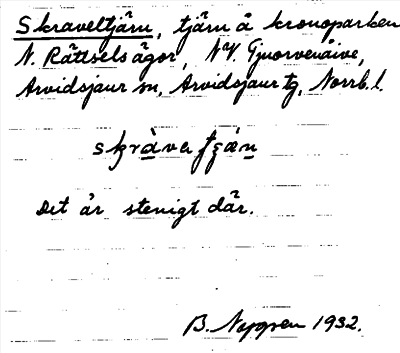 Skraveltjärn, tjärn å kronoparken
N. Rättselsägor, NV. Tjuorvenåive,
Arvidsjaur sn, Arvidsjaur tg, Norrb. l.
skràvɐtʃæ̀n
Det är stenigt där.
B. Noppen 1932.